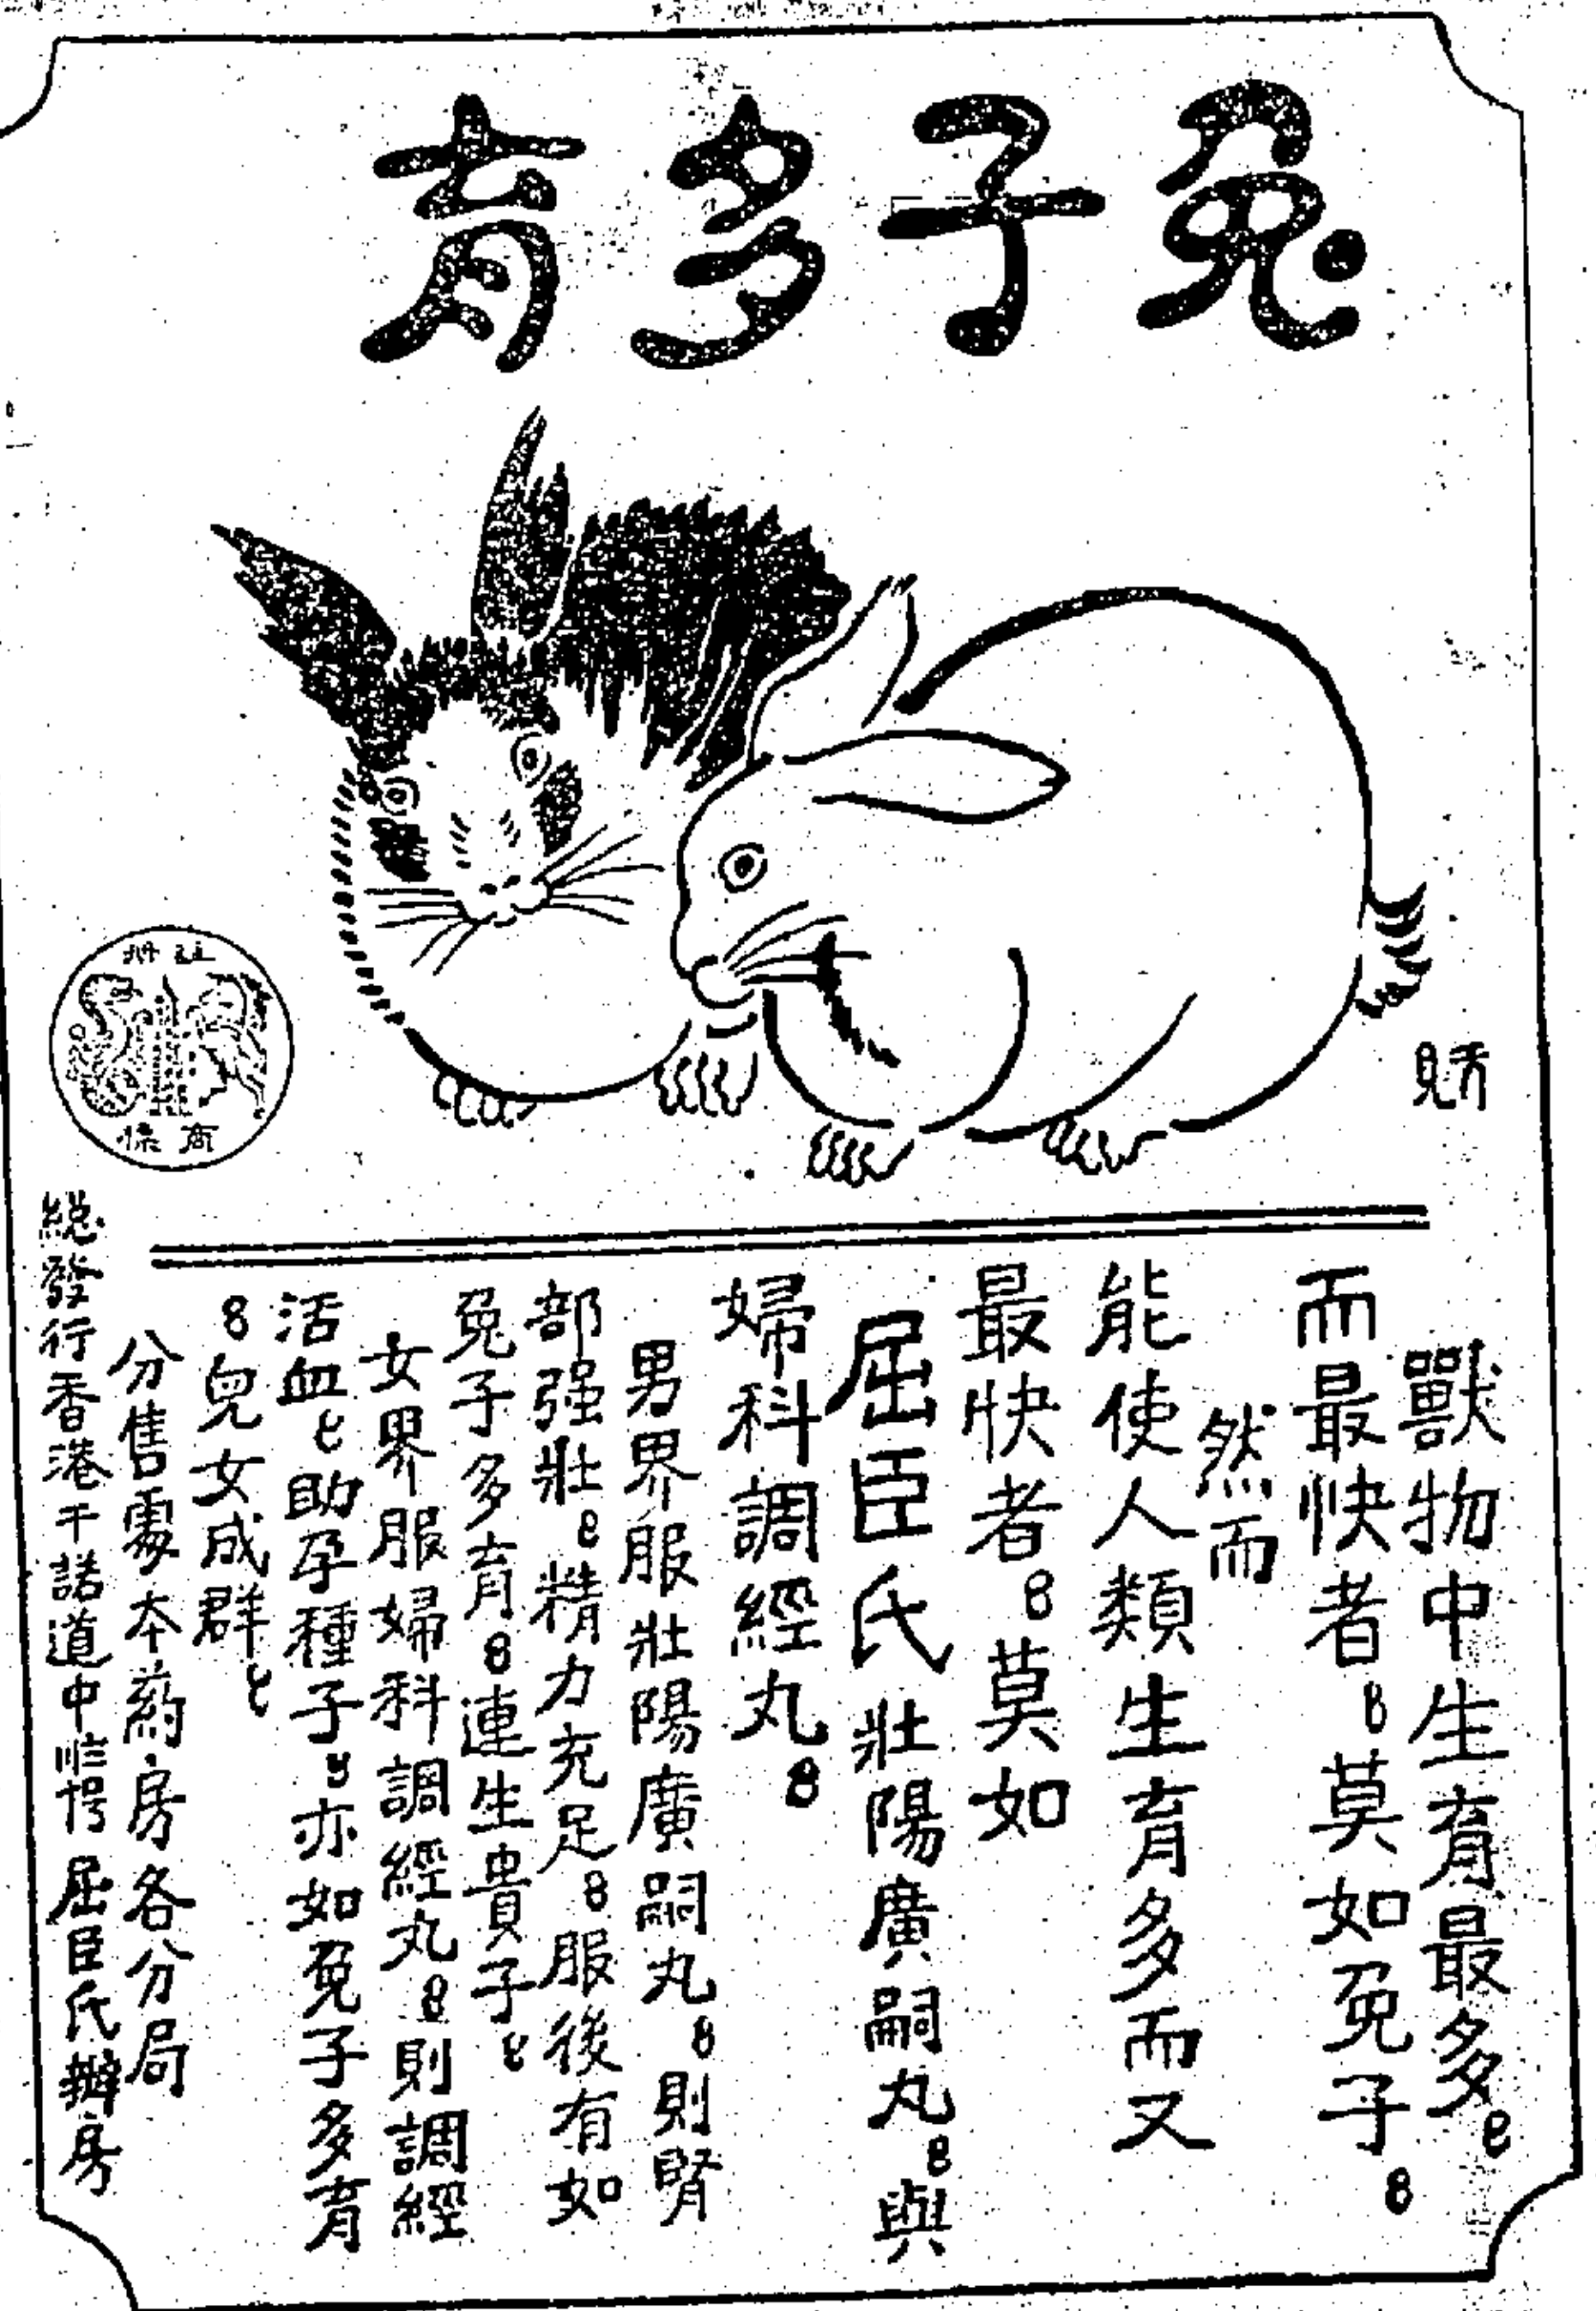 兔子多育
註冊
商標
獸物中生育最多
而最快者莫如兔子
然而
能使人類生育多而又
最快者莫如
屈臣氏壯陽廣嗣丸與
婦科調經丸
男界服壯陽廣嗣丸則腎
部强壯精力充足服後有如
兔子多育連生貴子
女界服婦科調經丸則調經
活血助孕種子亦如兔子多育
兒女成群
分售處本葯房各分局
總發行香港干諾道中 屈臣氏葯房